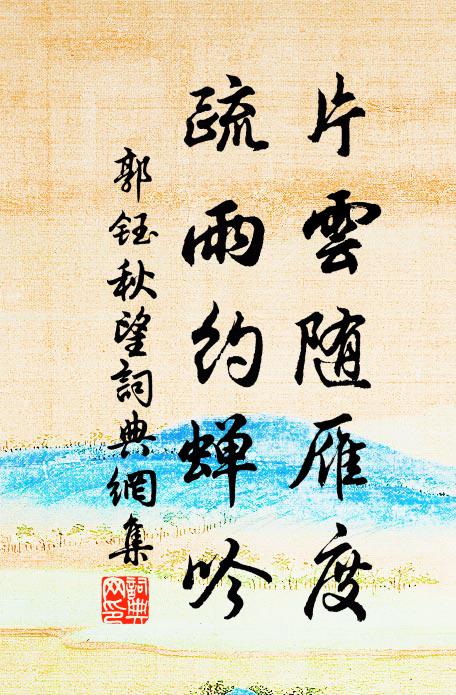 片雲随雁度
疏雨約蝉吟
郭鈺秋望詞典網集
詞典网印